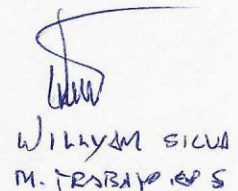 WILLYAM SILVA
M. TRABAJO